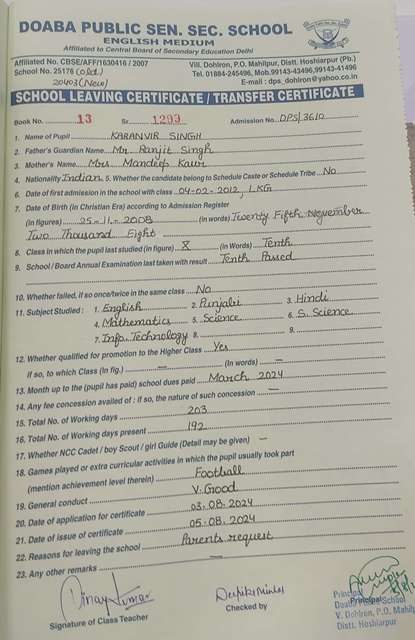 DOABA PUBLIC SEN. SEC. SCHOOL
ENGLISH MEDIUM
Affiliated to Central Board of Secondary Education Delhi
Affiliated No. CBSE/AFF/1630416 / 2007
Vill. Dohlron, P.O. Mahilpur, Distt. Hoshiarpur (Pb.)
School No. 25176 (old)
Tel. 01884-245496, Mob.99143-43496,99143-41496
20403 (New)
E-mail : dps_dohlron@yahoo.co.in
SCHOOL LEAVING CERTIFICATE / TRANSFER CERTIFICATE
Book No. 13 Sr. 1299 Admission No. DPS/3610
1. Name of Pupil KARANVIR SINGH
2. Father's Guardian Name Mr. Ranjit Singh
3. Mother's Name Mrs Mandeep Kaur
4. Nationality Indian 5. Whether the candidate belong to Schedule Caste or Schedule Tribe No
6. Date of first admission in the school with class 04-02-2012, LKG
7. Date of Birth (in Christian Era) according to Admission Register
(in figures) 25-11-2008 (in words) Twenty Fifth November
Two Thousand Eight
8. Class in which the pupil last studied (in figure) X (in Words) Tenth
9. School / Board Annual Examination last taken with result Tenth Passed
10. Whether failed, if so once/twice in the same class No
11. Subject Studied : 1. English 2. Punjabi 3. Hindi
4. Mathematics 5. Science 6. S. Science
7. Info. Technology 8. 9.
12. Whether qualified for promotion to the Higher Class Yes
if so, to which Class (In fig.) — (In words) —
13. Month up to the (pupil has paid) school dues paid March 2024
14. Any fee concession availed of : if so, the nature of such concession —
15. Total No. of Working days 203
16. Total No. of Working days present 192
17. Whether NCC Cadet / boy Scout / girl Guide (Detail may be given) —
18. Games played or extra curricular activities in which the pupil usually took part
(mention achievement level therein) Football
19. General conduct V. Good
20. Date of application for certificate 03.08.2024
21. Date of issue of certificate 05.08.2024
22. Reasons for leaving the school Parents request
23. Any other remarks —
Vinay Kumar
Signature of Class Teacher
Checked by
Principal
Principal
Doaba Public School
V. Dohlron, P.O. Mahilpur
Distt. Hoshiarpur